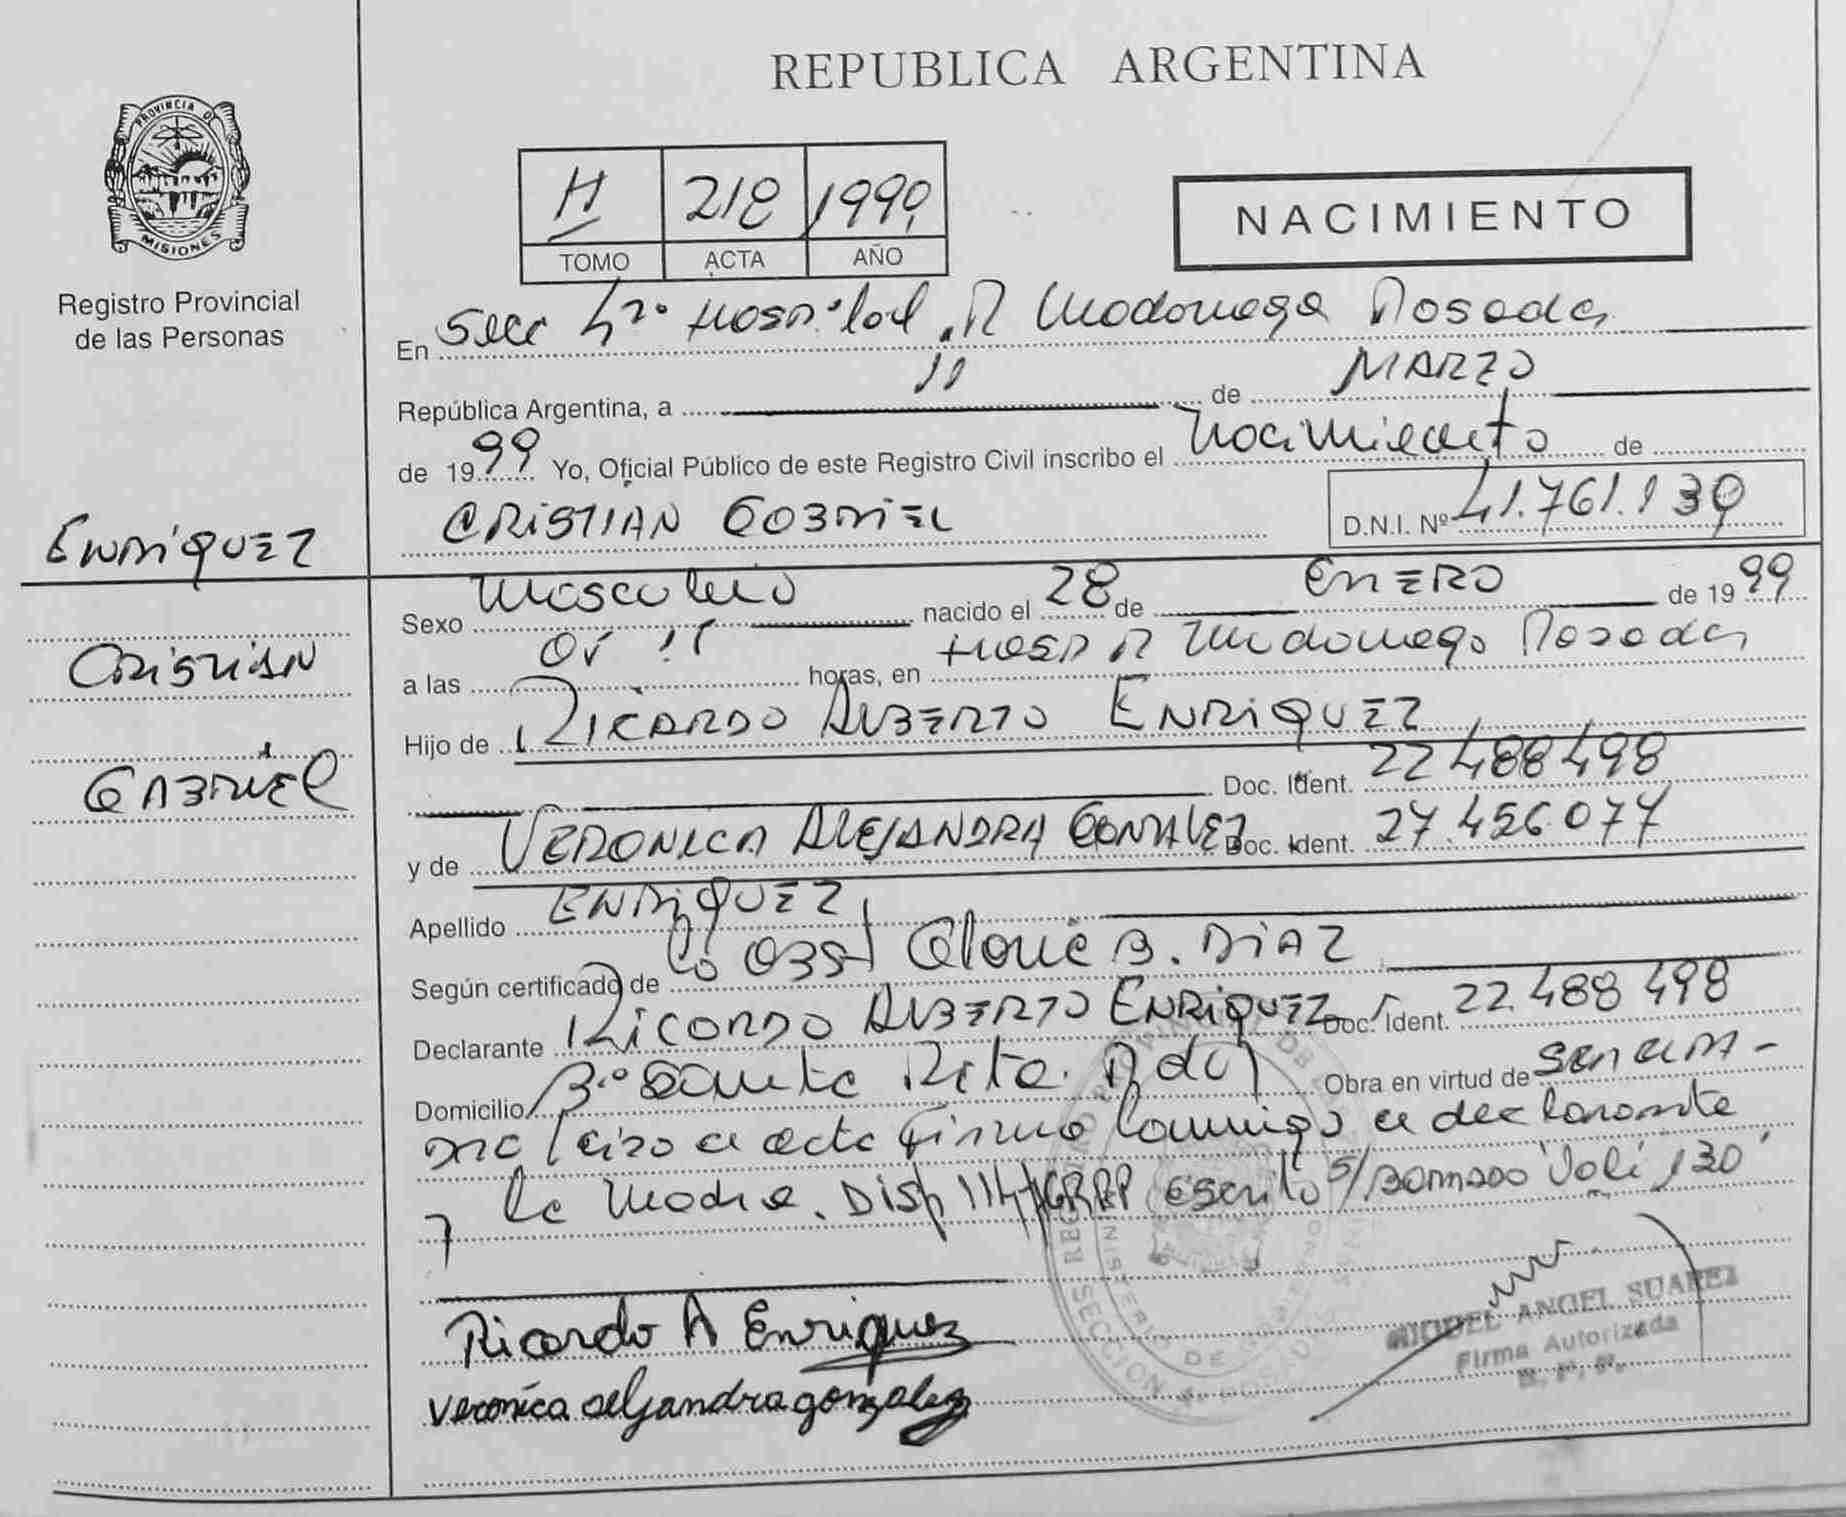 REPUBLICA ARGENTINA
PROVINCIA DE
MISIONES
Registro Provincial
de las Personas
H 218 1999
TOMO ACTA AÑO
NACIMIENTO
En Secc 4ta Hospital R Madariaga Posadas
República Argentina, a 11 de MARZO
de 1999 Yo, Oficial Público de este Registro Civil inscribo el Nacimiento de
CRISTIAN GABRIEL D.N.I. Nº 41.761.139
ENRIQUEZ
CRISTIAN
GABRIEL
Sexo Masculino nacido el 28 de ENERO de 1999
a las horas, en HOSP R Madariaga Posadas
Hijo de RICARDO ALBERTO ENRIQUEZ
Doc. Ident. 22 488 498
y de VERONICA ALEJANDRA GONZALEZ Doc. Ident. 27.456.077
Apellido ENRIQUEZ
Según certificado de la Obst B. DIAZ
Declarante RICARDO ALBERTO ENRIQUEZ Doc. Ident. 22.488 498
Domicilio Bº Santa Rita. Pdas Obra en virtud de SER EL PA-
DRE Leiso el acta Firma conmigo el declarante
y la Madre. Disp 114/GRPP escrito s/BORRADO Vale 130
Ricardo A Enriquez
Veronica alejandra gonzalez
MIGUEL ANGEL SUAREZ
Firma Autorizada